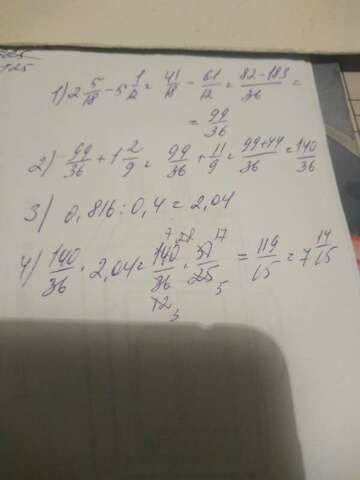 525
1) 2 5/18 - 5 1/12 = 41/18 - 61/12 = 82-183/36 =
= 99/36
2) 99/36 + 1 2/9 = 99/36 + 11/9 = 99+44/36 = 140/36
3) 0,816 : 0,4 = 2,04
4) 140/36 · 2,04 = 140/36 · 51/25 = 119/15 = 7 14/15
7 28 17
12 3 5